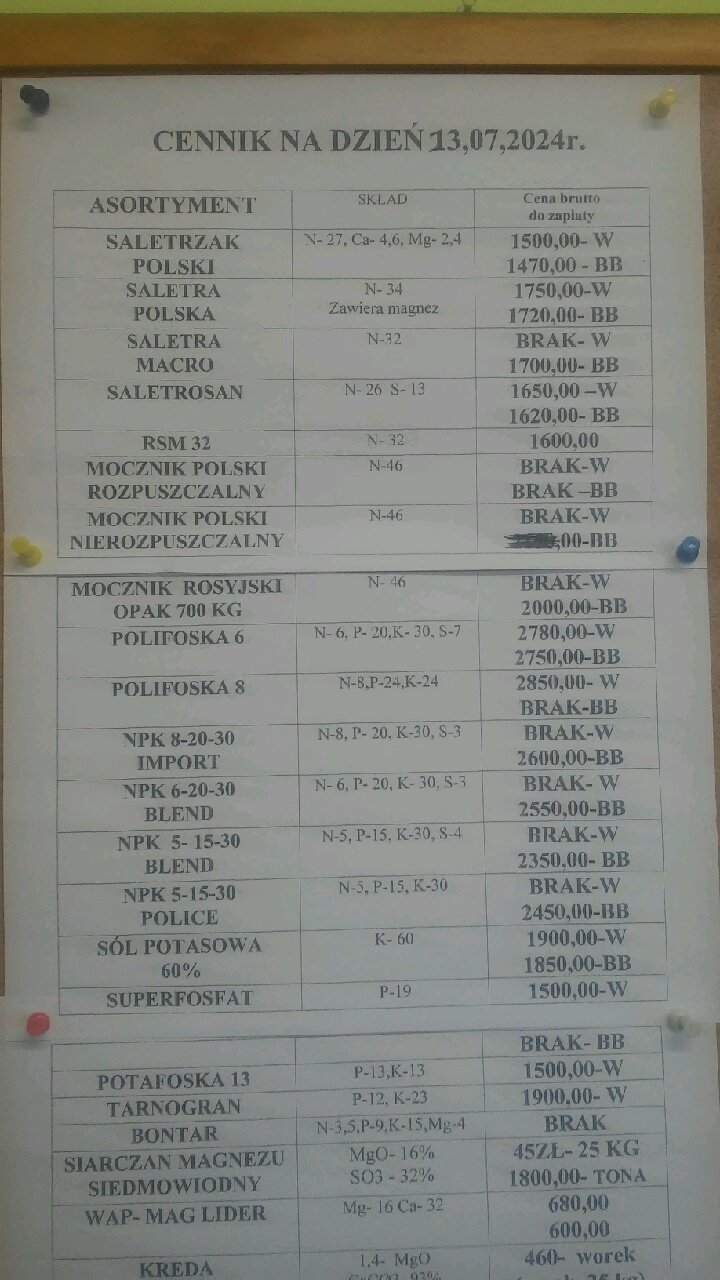 CENNIK NA DZIEŃ 13,07,2024r.
ASORTYMENT SKŁAD Cena brutto
do zapłaty
SALETRZAK N- 27, Ca- 4,6, Mg- 2,4 1500,00- W
POLSKI 1470,00 - BB
SALETRA N- 34 1750,00-W
POLSKA Zawiera magnez 1720,00- BB
SALETRA N-32 BRAK- W
MACRO 1700,00- BB
SALETROSAN N- 26 S- 13 1650,00 –W
1620,00- BB
RSM 32 N- 32 1600,00
MOCZNIK POLSKI N-46 BRAK-W
ROZPUSZCZALNY BRAK –BB
MOCZNIK POLSKI N-46 BRAK-W
NIEROZPUSZCZALNY ,00-BB
MOCZNIK ROSYJSKI N- 46 BRAK-W
OPAK 700 KG 2000,00-BB
POLIFOSKA 6 N- 6, P- 20,K- 30, S-7 2780,00-W
2750,00-BB
POLIFOSKA 8 N-8,P-24,K-24 2850,00- W
BRAK-BB
NPK 8-20-30 N-8, P- 20, K-30, S-3 BRAK-W
IMPORT 2600,00-BB
NPK 6-20-30 N- 6, P- 20, K- 30, S-3 BRAK- W
BLEND 2550,00-BB
NPK 5- 15-30 N-5, P-15, K-30, S-4 BRAK-W
BLEND 2350,00- BB
NPK 5-15-30 N-5, P-15, K-30 BRAK-W
POLICE 2450,00-BB
SÓL POTASOWA K- 60 1900,00-W
60% 1850,00-BB
SUPERFOSFAT P-19 1500,00-W
BRAK- BB
POTAFOSKA 13 P-13,K-13 1500,00-W
TARNOGRAN P-12, K-23 1900,00- W
BONTAR N-3,5,P-9,K-15,Mg-4 BRAK
SIARCZAN MAGNEZU MgO- 16% 45ZŁ- 25 KG
SIEDMOWIODNY SO3 - 32% 1800,00- TONA
WAP- MAG LIDER Mg- 16 Ca- 32 680,00
600,00
KREDA 1,4- MgO 460- worek